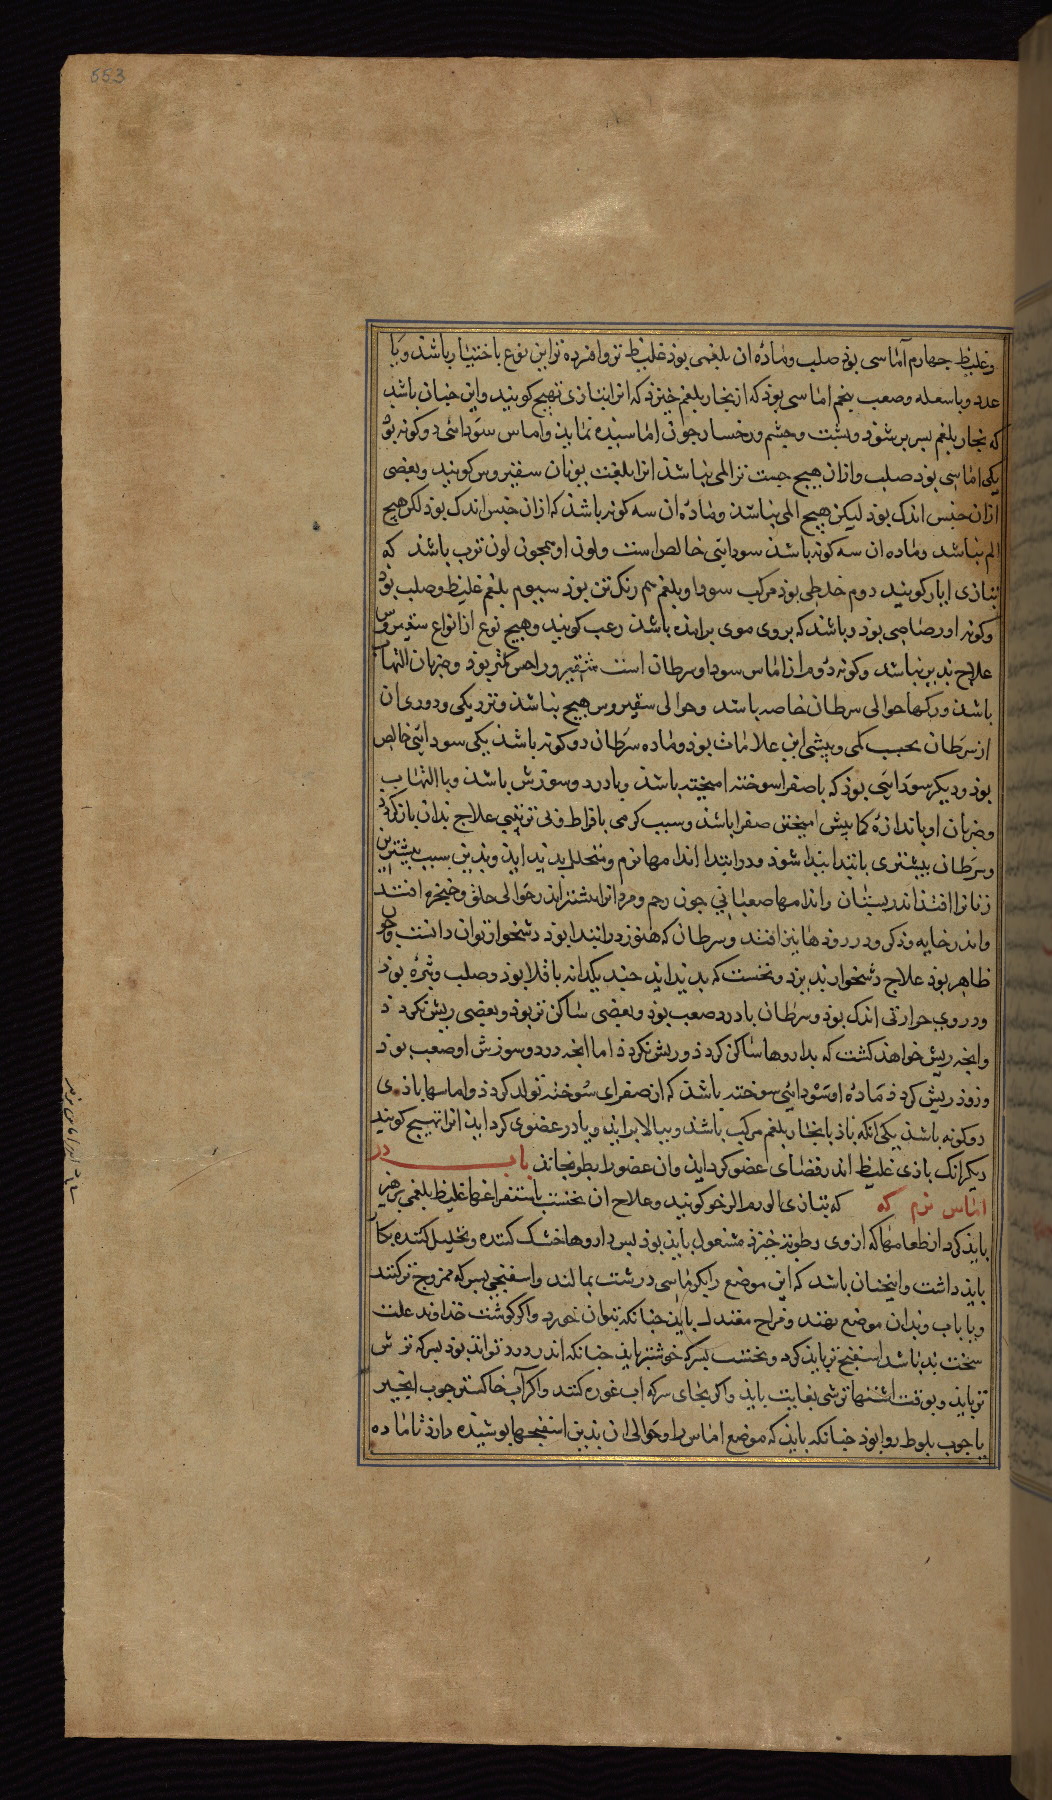 553
وغلیظ چهارم آماسی بوذ صلب وماده ان بلغمی بوذ غلیظ تر وافزده تر این نوع باختیار باشذ ویا
عدد ویا سعله وصعب پنجم اماسی بوذ که از بخار بلغم خیزذ که انرا بتازی تهیج کویند واین چنان باشد
که بخار بلغم بسر بر شوذ وپشت وچشم ورخسار چون اماسیذه نماید واماس سودائی دو کونه بوذ
یکی اماسی بوذ صلب واز ان هیچ جست تر المی نباشذ انرا بلغت یونان سقیروس کویند وبعضی
ازان جنس اندک بوذ لیکن هیچ المی نباشذ وماده ان سه کونه باشذ که ازان جنس اندک بوذ لکن هیچ
الم نباشد وماده ان سه کونه باشذ سودائی خالص است ولون او همچون لون ترب باشذ که
بتازی ابار کویند دوم خلطی بوذ مرکب سودا وبلغم هم رنک تن بوذ سیوم بلغم غلیظ وصلب بوذ
وکونه او رصاصی بوذ وباشذ که بروی موی برامذه باشذ رعب کویند وهیچ نوع از انواع سقیروس
علاج پذیر نباشد وکونه دوم از اماس سودا وسرطان است سقیرو راحس کمتر بوذ وضربان التهاب
باشذ ورکها حوالی سرطان خاصه باشد وحوالی سقیروس هیچ نباشذ ونزدیکی ودوری ان
از سرطان بحسب کمی وبیشی این علامات بوذ وماده سرطان دو کونه باشذ یکی سودائی خالص
بوذ ودیکر سودایی بوذ که با صفرا سوخته امیخته باشذ وبا درد وسوزش باشذ وبا التهاب
وضربان او باندازه کمابیش امیختن صفرا باشذ وسبب کرمی بافراط وبی ترتیبی علاج بذان باز کردذ
وسرطان بیشتری بابتدا پیدا شوذ ودر ابتدا اندامها نرم ومتخلل پدید اید وبدین سبب بیشترین
زنانرا افتذ اندر پستان واندامها عصبانی چون رحم ومردانرا بیشتر اندر حوالی حلق وحنجره افتد
واندر خایه وذکر ودر روذها نیز افتد وسرطان که هنوز در ابتدا بوذ دشخوار توان دانست وچون
ظاهر بوذ علاج دشخوار پذیرد ونخست که پدید اید چند یکدانه باقلا بوذ وصلب وتیره بوذ
ودر وی حرارتی اندک بوذ وسرطان با درد صعب بوذ وبعضی ساکن تر بوذ وبعضی ریش نکردذ
وانچه ریش خواهذ کشت که بداروها ساکن کردذ وریش نکردذ اما انچه درد وسوزش او صعب بوذ
وزوذ ریش کردذ ماده او سودائی سوخته باشذ که از صفرای سوخته تولد کردذ واماسها باذی
دو کونه باشذ یکی انکه باذ با بخار بلغم مرکب باشذ وببالا براید ویا در عضوی کرد اید انرا تهیج کویند
دیکر انک باذی غلیظ اندر فضای عضو کرد اید وان عضو را بطرنجاند باب در
اماس نرم که که بتازی الورم الرخو کویند وعلاج ان نخست باستفراغها غلیظ بلغمی پرهیز
باید کرد از طعامها که ازوی رطوبت خیزذ مشغول باید بوذ پس داروها خشک کننده وتحلیل کننده بکار
باید داشت واینچنان باشد که این موضع را بکرماسی درشت بمالند واسفنجی بسرکه ممزوج تر کنند
ویا باب وبدان موضع نهند ومزاج معتدل باید چنانکه بتوان خورد واکر کوشت خداوند علت
سخت بد باشد اسفنج تر باید کرد ونخست بسرکه خوشتر باید چنانکه اندر درد تواند بوذ بسرکه ترش
تر باید وبوقت اشتنها ترشی بغایت باید واکر بجای سرکه اب غوره کنند واکر آب خاکستر چوب انجیر
یا چوب بلوط روا بوذ چنانکه باید که موضع اماس را وحوالی ان بدین اسفنجها پوشیذه دارذ تا ماده